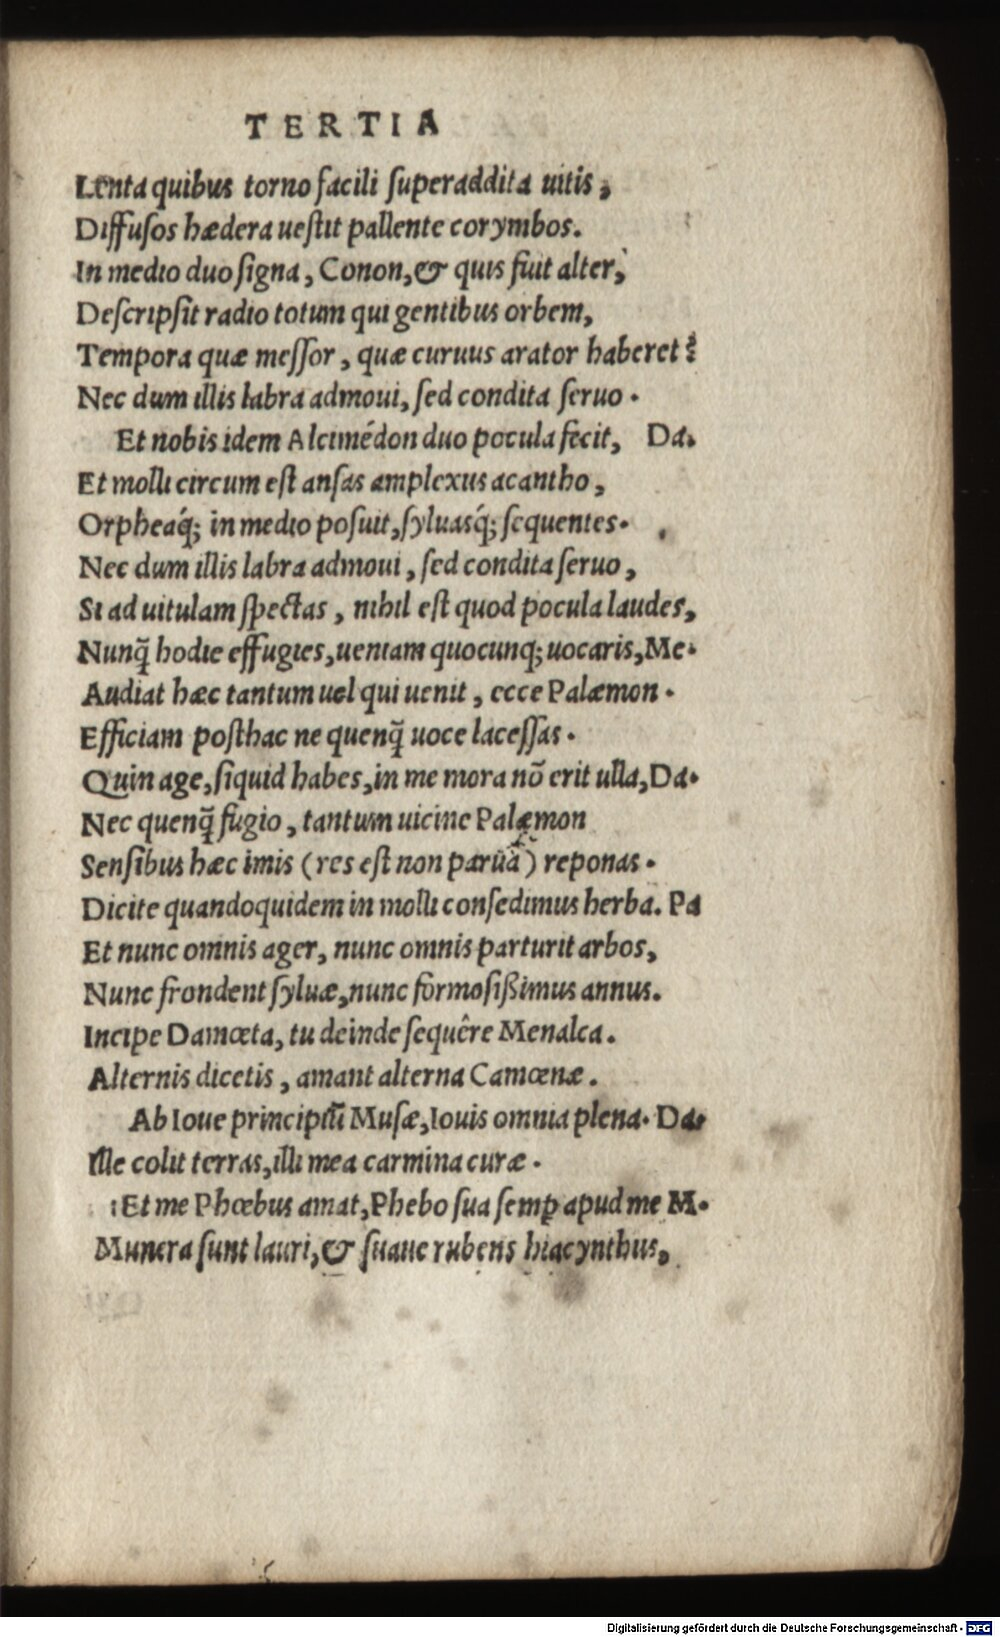 TERTIA
Lẽnta quibus torno facili ſuperaddita uitis,
Diffuſos hædera ueſtit pallente corymbos.
In medio duo ſigna, Conon, & quis fuit alter,
Deſcripſit radio totum qui gentibus orbem,
Tempora quæ meſſor, quæ curuus arator haberet?
Nec dum illis labra admoui, ſed condita ſeruo.
Et nobis idem Alcimédon duo pocula fecit, Da.
Et molli circum eſt anſas amplexus acantho,
Orpheaq́; in medio poſuit, ſyluasq́; ſequentes.
Nec dum illis labra admoui, ſed condita ſeruo,
Si ad uitulam ſpectas, nihil eſt quod pocula laudes,
Nunq̃ hodie effugies, ueniam quocunq; uocaris, Me.
Audiat hæc tantum uel qui uenit, ecce Palæmon.
Efficiam poſthac ne quenq̃ uoce laceſſas.
Quin age, ſiquid habes, in me mora nõ erit ulla, Da.
Nec quenq̃ fugio, tantum uicine Palæmon
Senſibus hæc imis (res eſt non parua) reponas.
Dicite quandoquidem in molli conſedimus herba. Pa
Et nunc omnis ager, nunc omnis parturit arbos,
Nunc frondent ſyluæ, nunc formoſißimus annus.
Incipe Damœta, tu deinde ſequêre Menalca.
Alternis dicetis, amant alterna Camœnæ.
Ab Ioue principiũ Muſæ, Iouis omnia plena. Da.
Ille colit terras, illi mea carmina curæ.
:Et me Phœbus amat, Phebo ſua ſemꝑ apud me M.
Munera ſunt lauri, & ſuaue rubens hiacynthus,
Digitalisierung gefördert durch die Deutsche Forschungsgemeinschaft - DFG